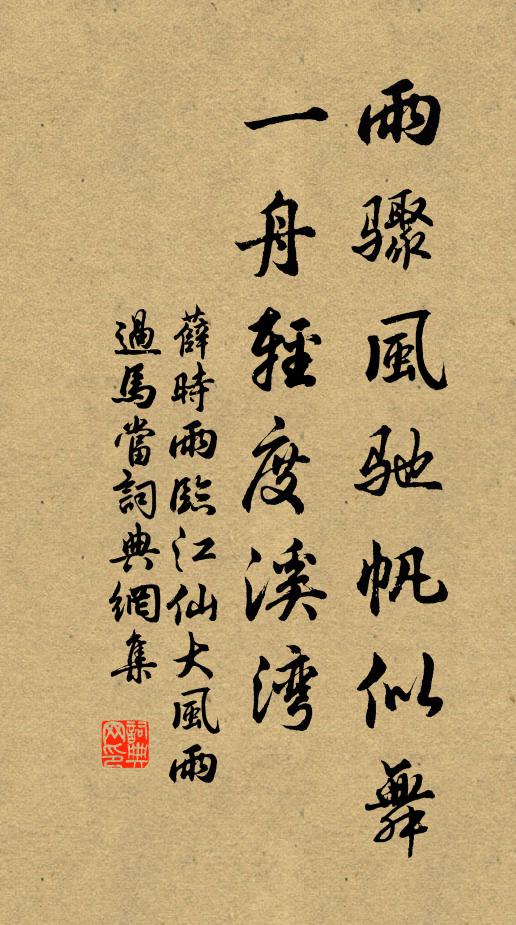 雨骤風驰帆似舞
一舟輕度溪湾
薛時雨臨江仙大風雨
過馬當詞典網集
詞典
网印